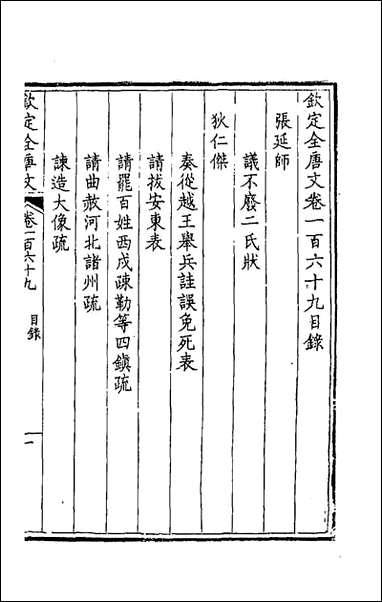 欽定全唐文卷一百六十九目錄
張延師
議不廢二氏狀
狄仁傑
奏從越王舉兵詿誤免死表
請拔安東表
請罷百姓西戍疎勒等四鎭疏
請曲赦河北諸州疏
諫造大像疏
欽定全唐文
卷一百六十九 目錄
一